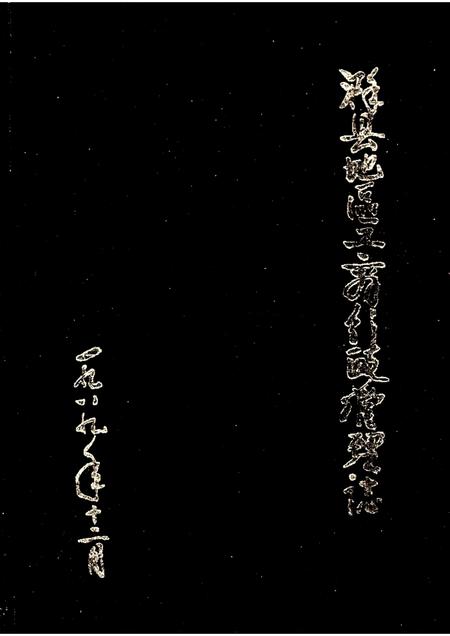 達县地區工商行政管理誌
一九八九年十二月